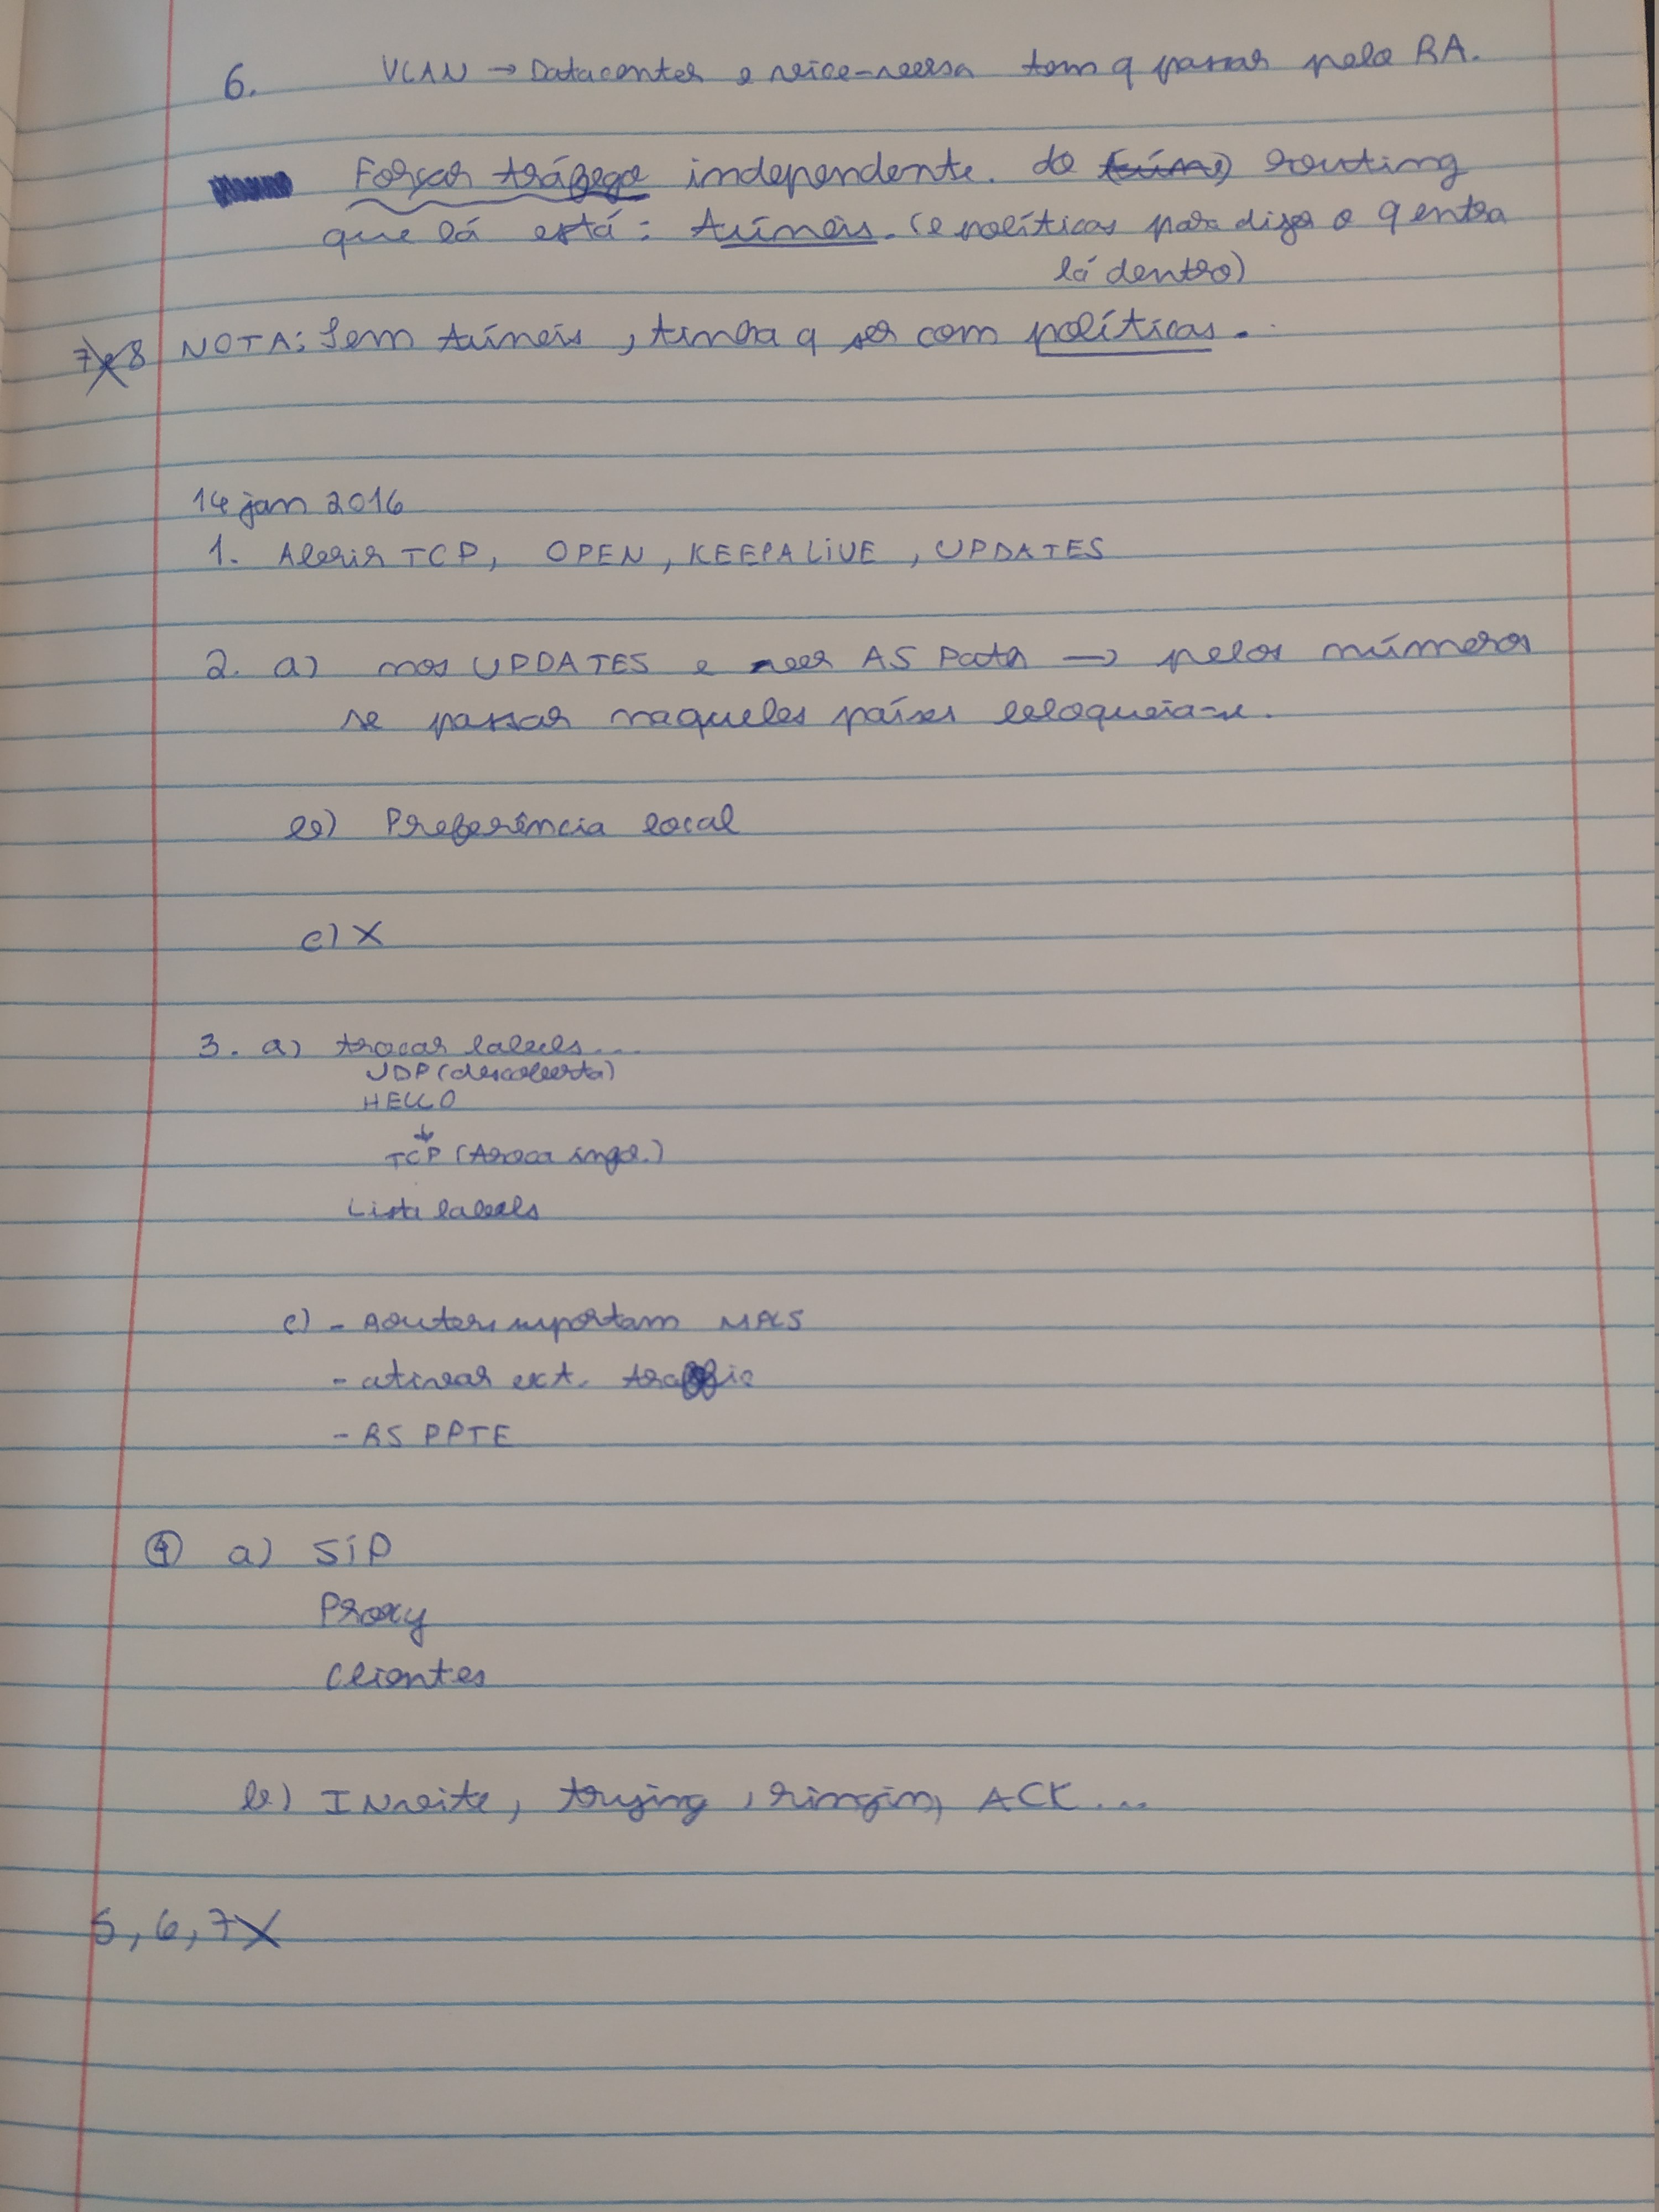 6. VLAN → Datacenter e vice-versa tem q passar pelo RA.
Forçar tráfego independente. do (túne) routing
que lá está: túneis. (e políticas para dizer o q entra
lá dentro)
7e8 NOTA: Sem túneis, tinha q ser com políticas.
14 jan 2016
1. Abrir TCP, OPEN, KEEPALIVE, UPDATES
2. a) nos UPDATES e ver AS Path → pelos números
se passar naqueles países bloqueia-se.
b) Preferência local
c) X
3. a) trocar labels...
UDP (descoberta)
HELLO
↓
TCP (troca info.)
Lista labels
c) - Routers suportam MPLS
- ativar ext. traffic
- RS PPTE
4 a) SiP
Proxy
Clientes
b) INvite, trying, ringin, ACK...
5, 6, 7 X